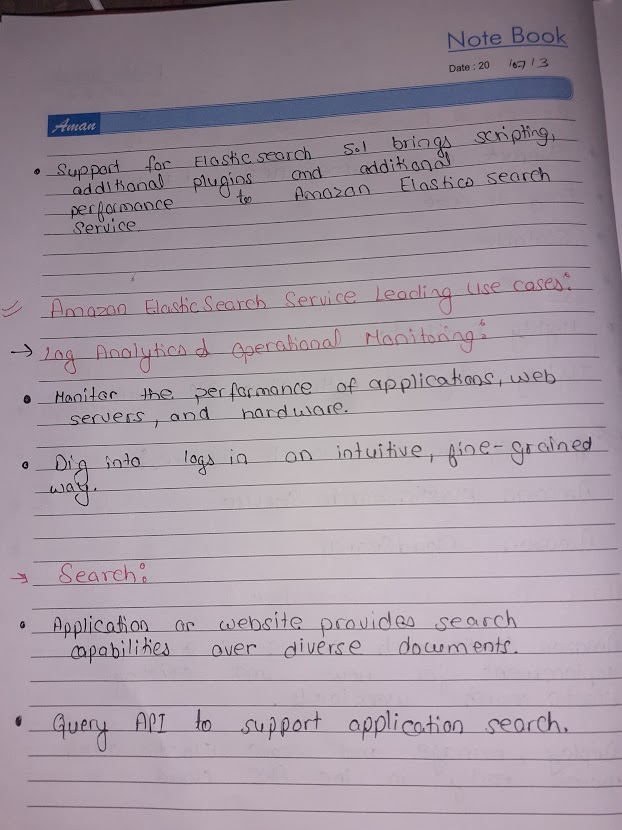 Note Book
Date : 20 10713
Aman
• Support for Elasticsearch 5.1 brings scripting,
additional plugins and additional
performance to Amazan Elastico search
Service.
Amazon ElasticSearch Service Leading Use cases:
→ Log Analytics & Operational Monitoring:
• Monitor the performance of applications, web
servers, and hardware.
• Dig into logs in an intuitive, fine-grained
way.
→ Search:
• Application or website provides search
capabilities over diverse documents.
• Query API to support application search.